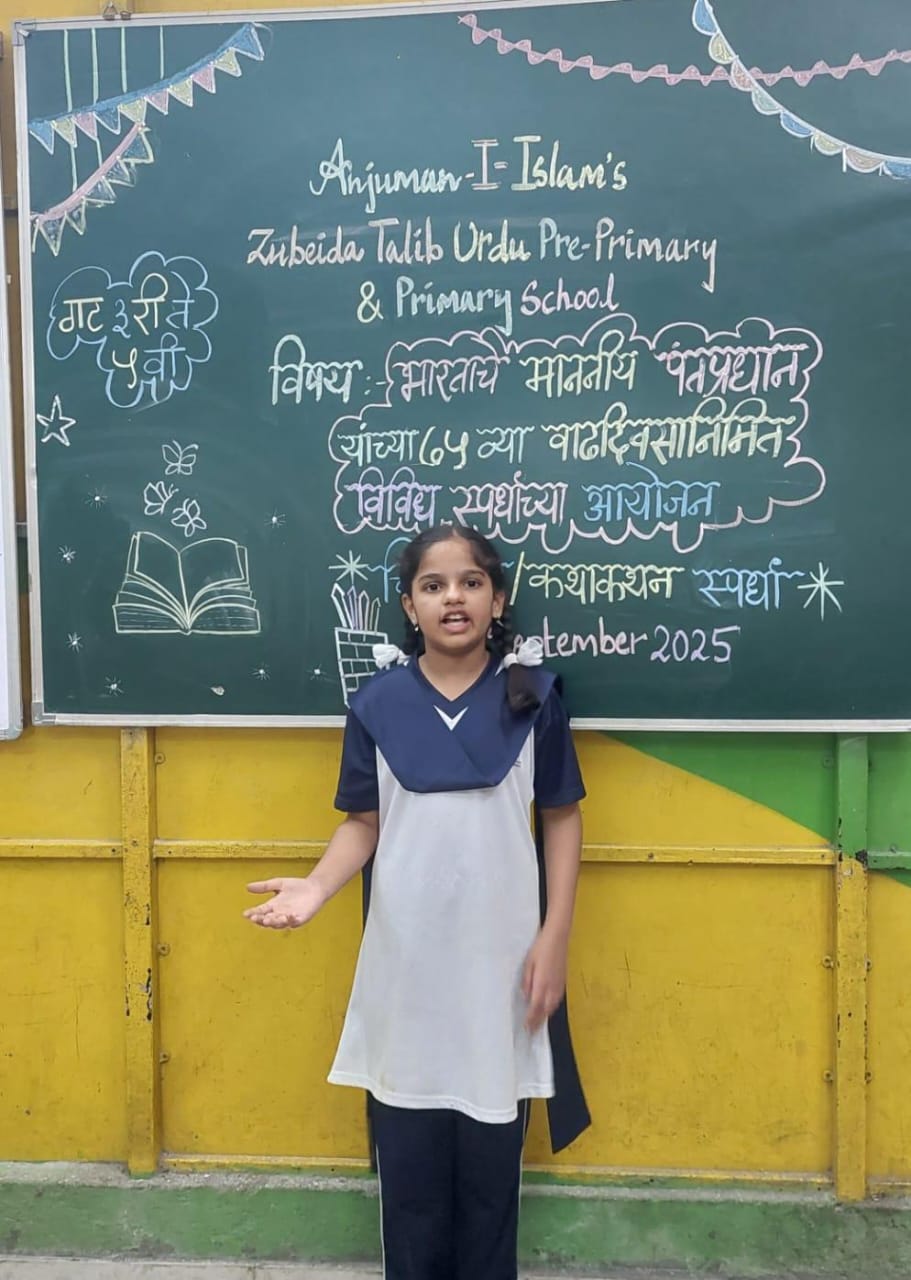 Anjuman-I-Islam's
Zubeida Talib Urdu Pre-Primary
& Primary School
गट ३री ते
५ वी
विषय :- भारताचे माननीय पंतप्रधान
यांच्या ७५ व्या वाढदिवसानिमित
विविध स्पर्धाच्या आयोजन
/कथाकथन स्पर्धा
2025